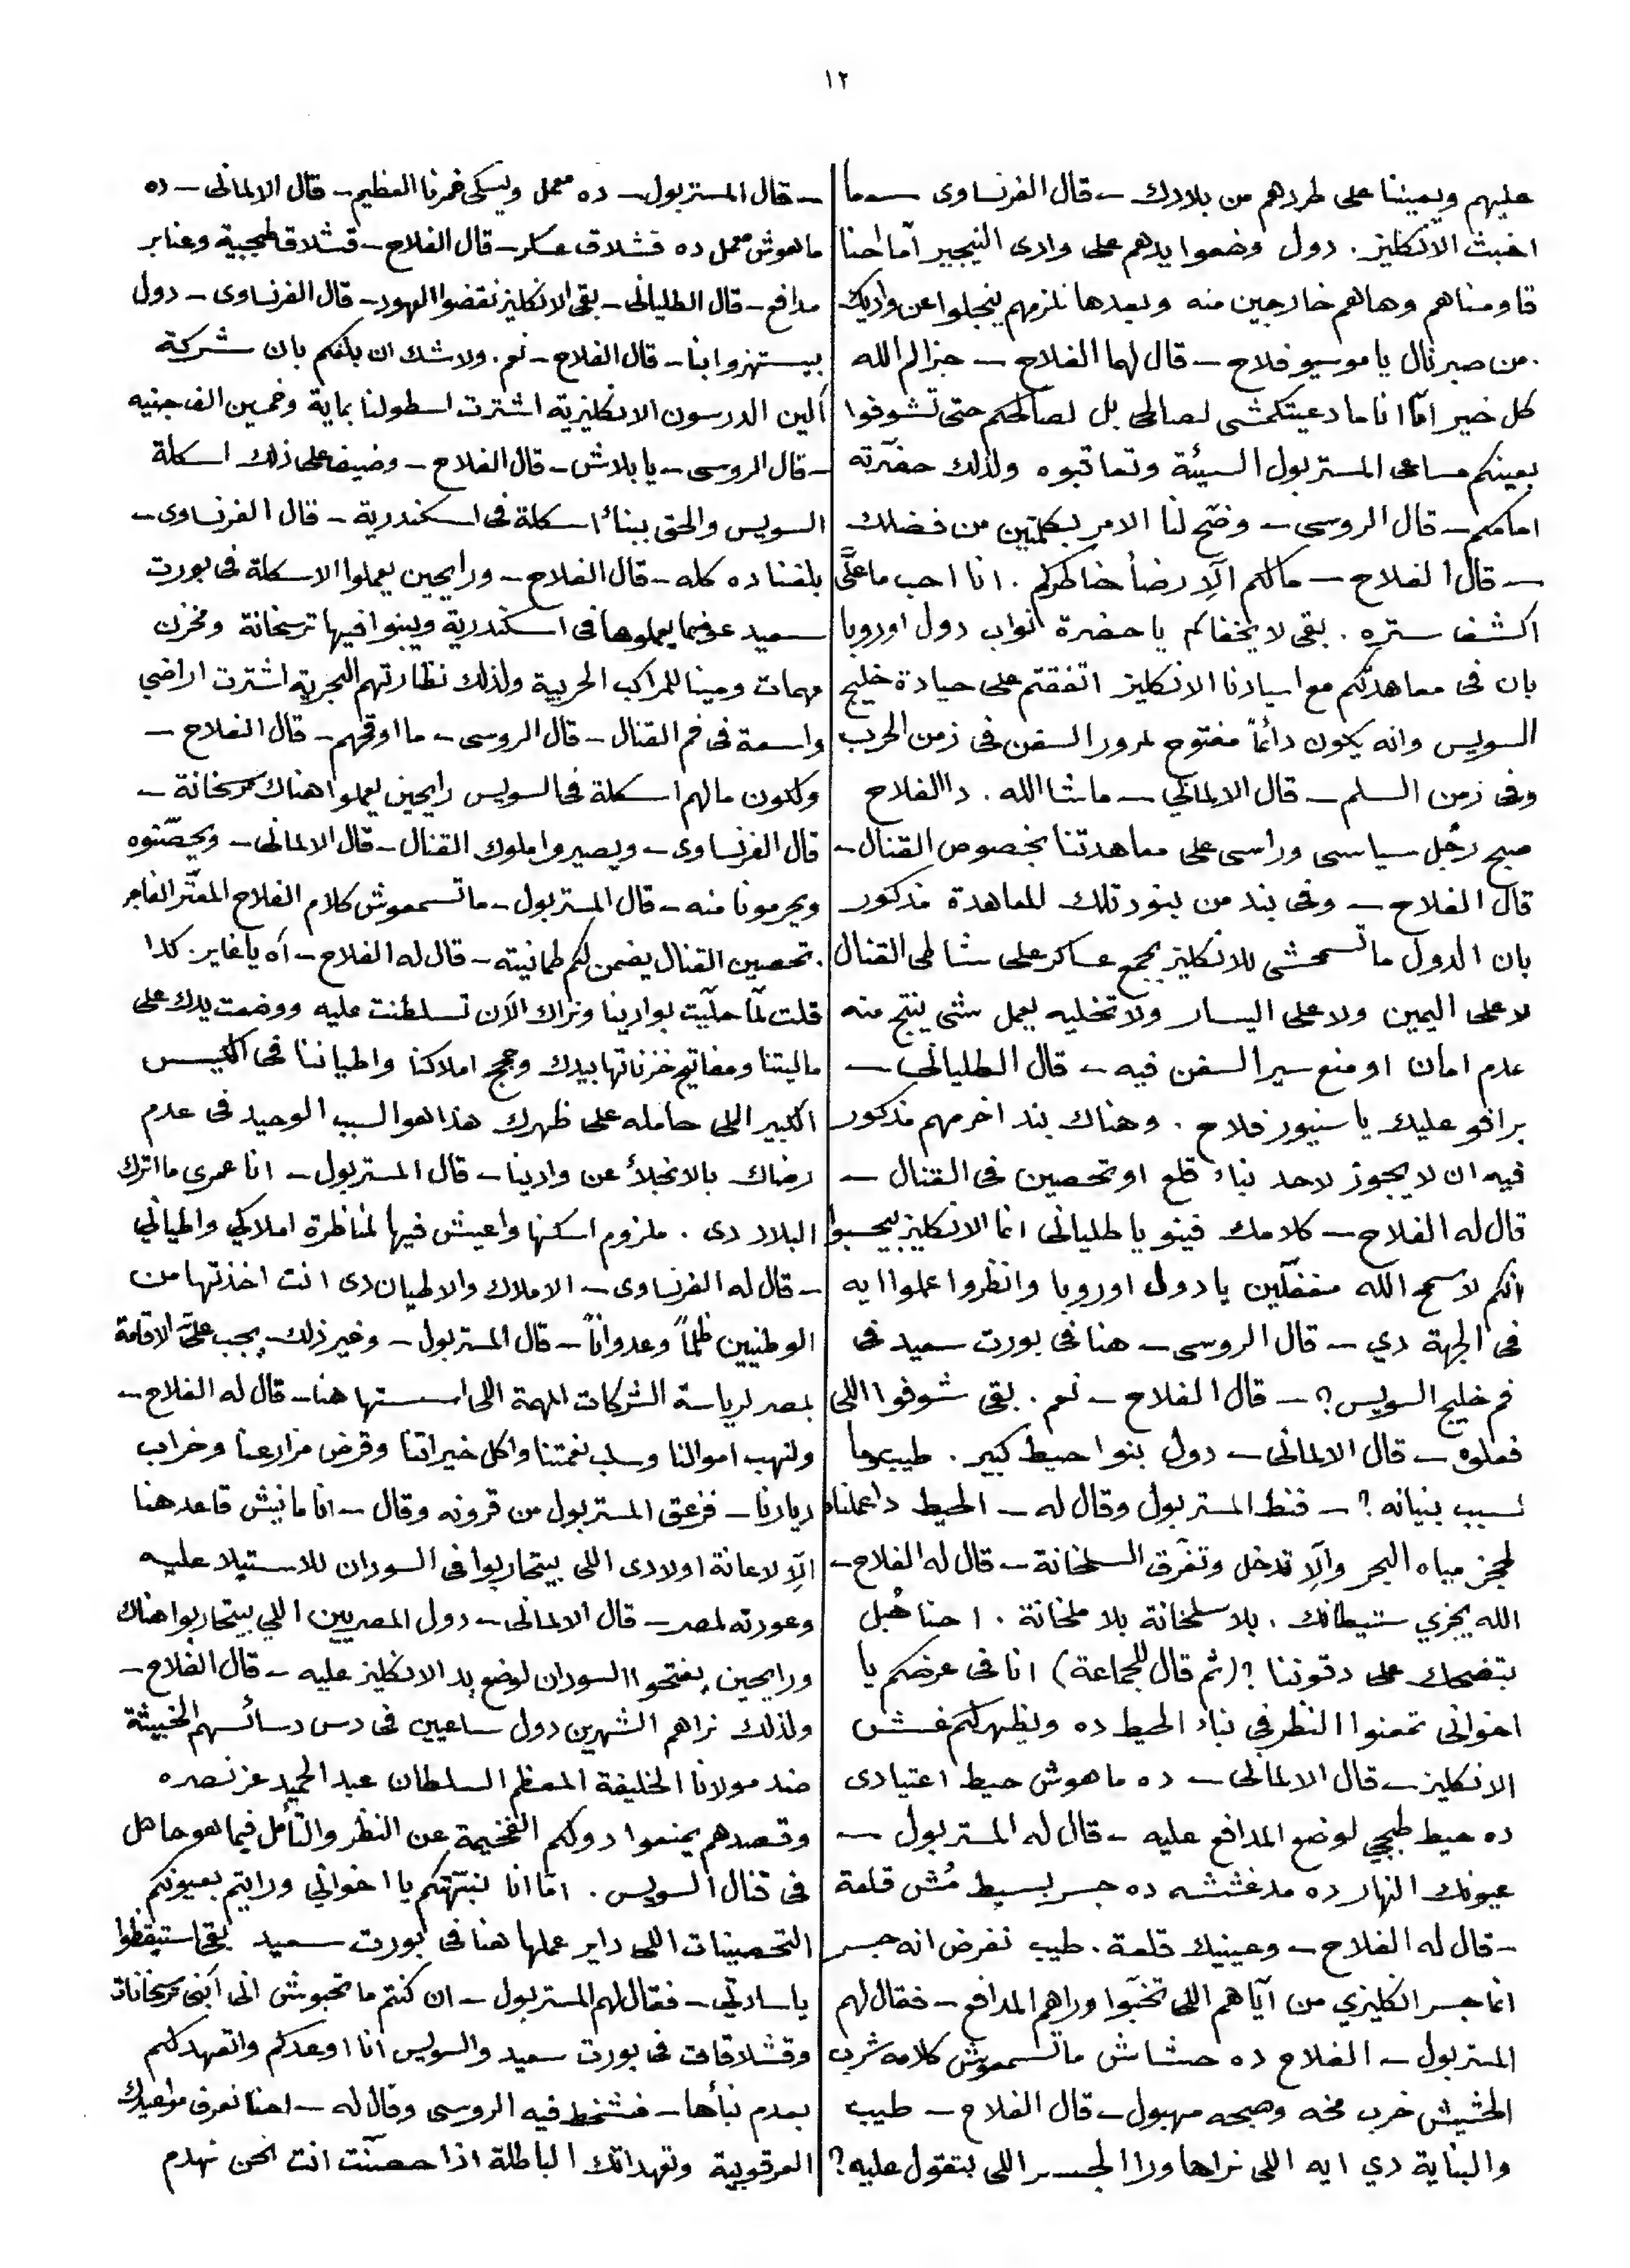 ١٢
عليهم ويعيننا على طردهم من بلادك – قال الفرنساوى – ما
اخبث الانكليز . دول وضعوا يدهم على وادى النيجير أما احنا
قاومناهم وهاهم خارجين منه وبعدها نلزمهم ينجلوا عن واديك
. من صبر نال يا موسيو فلاح – قال لهما الفلاح – جزاكم الله
كل خير امّا انا ما دعيتكمشى لصالحى بل لصالحكم حتى تشوفوا
بعينكم مساعى المستر بول السيئة وتعاتبوه ولذلك حضّرته
امامكم – قال الروسى – وضّح لنا الامر بكلمتين من فضلك
– قال الفلاح – مالكم الّا رضأ خاطركم . انا احب ما علىَّ
اكشف ستره . بقى لا يخفاكم يا حضرة نواب دول اوروبا
بان فى معاهدتكم مع اسيادنا الانكليز اتفقتم على حيادة خليج
السويس وانه يكون دائماً مفتوح لمرور السفن فى زمن الحرب
وفى زمن السلم – قال الالمانى – ماشا الله . دا الفلاح
صبح رجُل سياسى وراسى على معاهدتنا بخصوص القنال –
قال الفلاح – وفى بند من بنود تلك المعاهدة مذكور
بان الدول ما تسمحشى للانكليز بجمع عساكر على شاطى القنال
لا على اليمين ولا على اليسار ولا تخليه يعمل شئ ينتج منه
عدم امان او منع سير السفن فيه – قال الطليانى –
برافو عليك يا سنيور فلاح . وهناك بند اخر مهم مذكور
فيه ان لا يجوز لاحد بناء قلع او تحصين فى القنال –
قال له الفلاح – كلامك فينو يا طليانى انما الانكليز بيحسبوا
انكم لا سمح الله مغفلّين يا دول اوروبا وانظروا عملوا ايه
فى الجهة دي – قال الروسى – هنا فى بورت سعيد فى
فم خليج السويس ؟ – قال الفلاح – نعم . بقى شوفوا اللى
فعلوه – قال الالمانى – دول بنوا حيط كبير . طيب وما
سبب بنيانه ؟ – فنط المستر بول وقال له – الحيط دا عملناه
لحجز مياه البحر والّا تدخل وتغرق السلخانة – قال له الفلاح –
الله يخزي شيطانك . بلا سلخانة بلا ملخانة . احنا هُبل
بتضحك على دقوننا ؟ (ثم قال للجماعة) انا فى عرضكم يا
اخوانى تمعنوا النظر في بناء الحيط ده ويظهر لكم غش
الانكليز – قال الالمانى – ده ماهوش حيط اعتيادى
ده حيط طبجي لوضع المدافع عليه – قال له المستر بول –
عيونك النهار ده مدغششه ده جسر بسيط مُش قلعة
– قال له الفلاح – وعينيك قلعة . طيب نفرض انه جسر
انما جسر انكليزي من ايّاهم اللى تخبّوا وراهم المدافع – فقال لهم
المستر بول – الفلاح ده حشاش ما تسمعوش كلامه شرب
الحشيش خرب مخه وصبحه مهبول – قال الفلاح – طيب
والبناية دي ايه اللى نراها ورا الجسر اللى بتقول عليه ؟
– قال المستر بول – ده معمل ويسكى خمرنا العظيم – قال الالمانى – ده
ماهوش معمل ده قشلاق عسكر – قال الفلاح – قشلاق طبجية وعنابر
مدافع – قال الطليانى – بقى الانكليز نقضوا العهود – قال الفرنساوى – دول
بيستهزوا بنا – قال الفلاح – نعم . ولا شك ان بلغكم بان شركة
ألين الدرسون الانكليزية اشترت اسطولنا بماية وخمسين الف جنيه
– قال الروسى – يا بلاش – قال الفلاح – وضيف على ذلك اسكلة
السويس والحق ببناء اسكلة فى اسكندرية – قال الفرنساوى –
بلغنا ده كله – قال الفلاح – ورايحين يعملوا الاسكلة فى بورت
سعيد عوضما يعملوها فى اسكندرية ويبنوا فيها ترسخانة ومخزن
مهمات ومينا للمراكب الحربية ولذلك نظارتهم البحرية اشترت اراضي
واسعة فى فم القنال – قال الروسى – ما اوقحهم – قال الفلاح –
ولكون مالهم اسكلة فى السويس رايحين يعملوا هناك ترسخانة –
قال الفرنساوى – ويصيروا ملوك القنال – قال الالمانى – ويحصّنوه
ويحرمونا منه – قال المستر بول – ما تسمعوش كلام الفلاح المعتّر الفاجر
. تحصين القنال يضمن لكم طمانيته – قال له الفلاح – أه يا غاير . كدا
قلت لمّا حلّيت بوادينا ونراك الآن تسلطنت عليه ووضعت يدك على
ماليتنا ومفاتيح خزناتها بيدك وحجج املاكنا واطياننا فى الكيس
الكبير اللى حامله على ظهرك هذا هو السبب الوحيد فى عدم
رضاك بالانجلأ عن وادينا – قال المستر بول – انا عمرى ما اترك
البلاد دى . ملزوم اسكنها واعيش فيها لمناظرة املاكي واطياني
– قال له الفرنساوى – الاملاك والاطيان دى انت اخذتها من
الوطنيين ظلماً وعدواناً – قال المستر بول – وغير ذلك يجب علىّ الاقامة
بمصر لرياسة الشركات المهمة اللى اسستها هنا – قال له الفلاح –
ولنهب اموالنا وسلب نعمتنا واكل خيراتنا وقرض مزارعنا وخراب
ديارنا – فزعق المستر بول من قرونه وقال – انا مانيش قاعد هنا
الّا لاعانة اولادى اللى بيتحاربوا فى السودان للاستيلا عليه
وعودته لمصر – قال الالمانى – دول المصريين اللي بيتحاربوا هناك
ورايحين يفتحوا السودان لوضع يد الانكليز عليه – قال الفلاح –
ولذلك نراهم الشهرين دول ساعيين فى دس دسائسهم الخبيثة
ضد مولانا الخليفة المعظم السلطان عبد الحميد عز نصره
وقصدهم يمنعوا دولكم الفخيمة عن النظر والتأمل فيما هو حاصل
فى قنال السويس . امّا انا نبّهتكم يا اخواني ورايتم بعيونكم
التحصينات اللى داير عملها هنا فى بورت سعيد بقى استيقظوا
يا سادتي – فقال لهم المستر بول – ان كنتم ما تحبوش انى أبنى ترسخانات
وقشلاقات فى بورت سعيد والسويس انا اوعدكم واتعهد لكم
بعدم بنأها – فشخط فيه الروسى وقال له – احنا نعرف مواعيدك
العرقوبية وتعهداتك الباطلة اذا حصّنت انت نحن نهدم